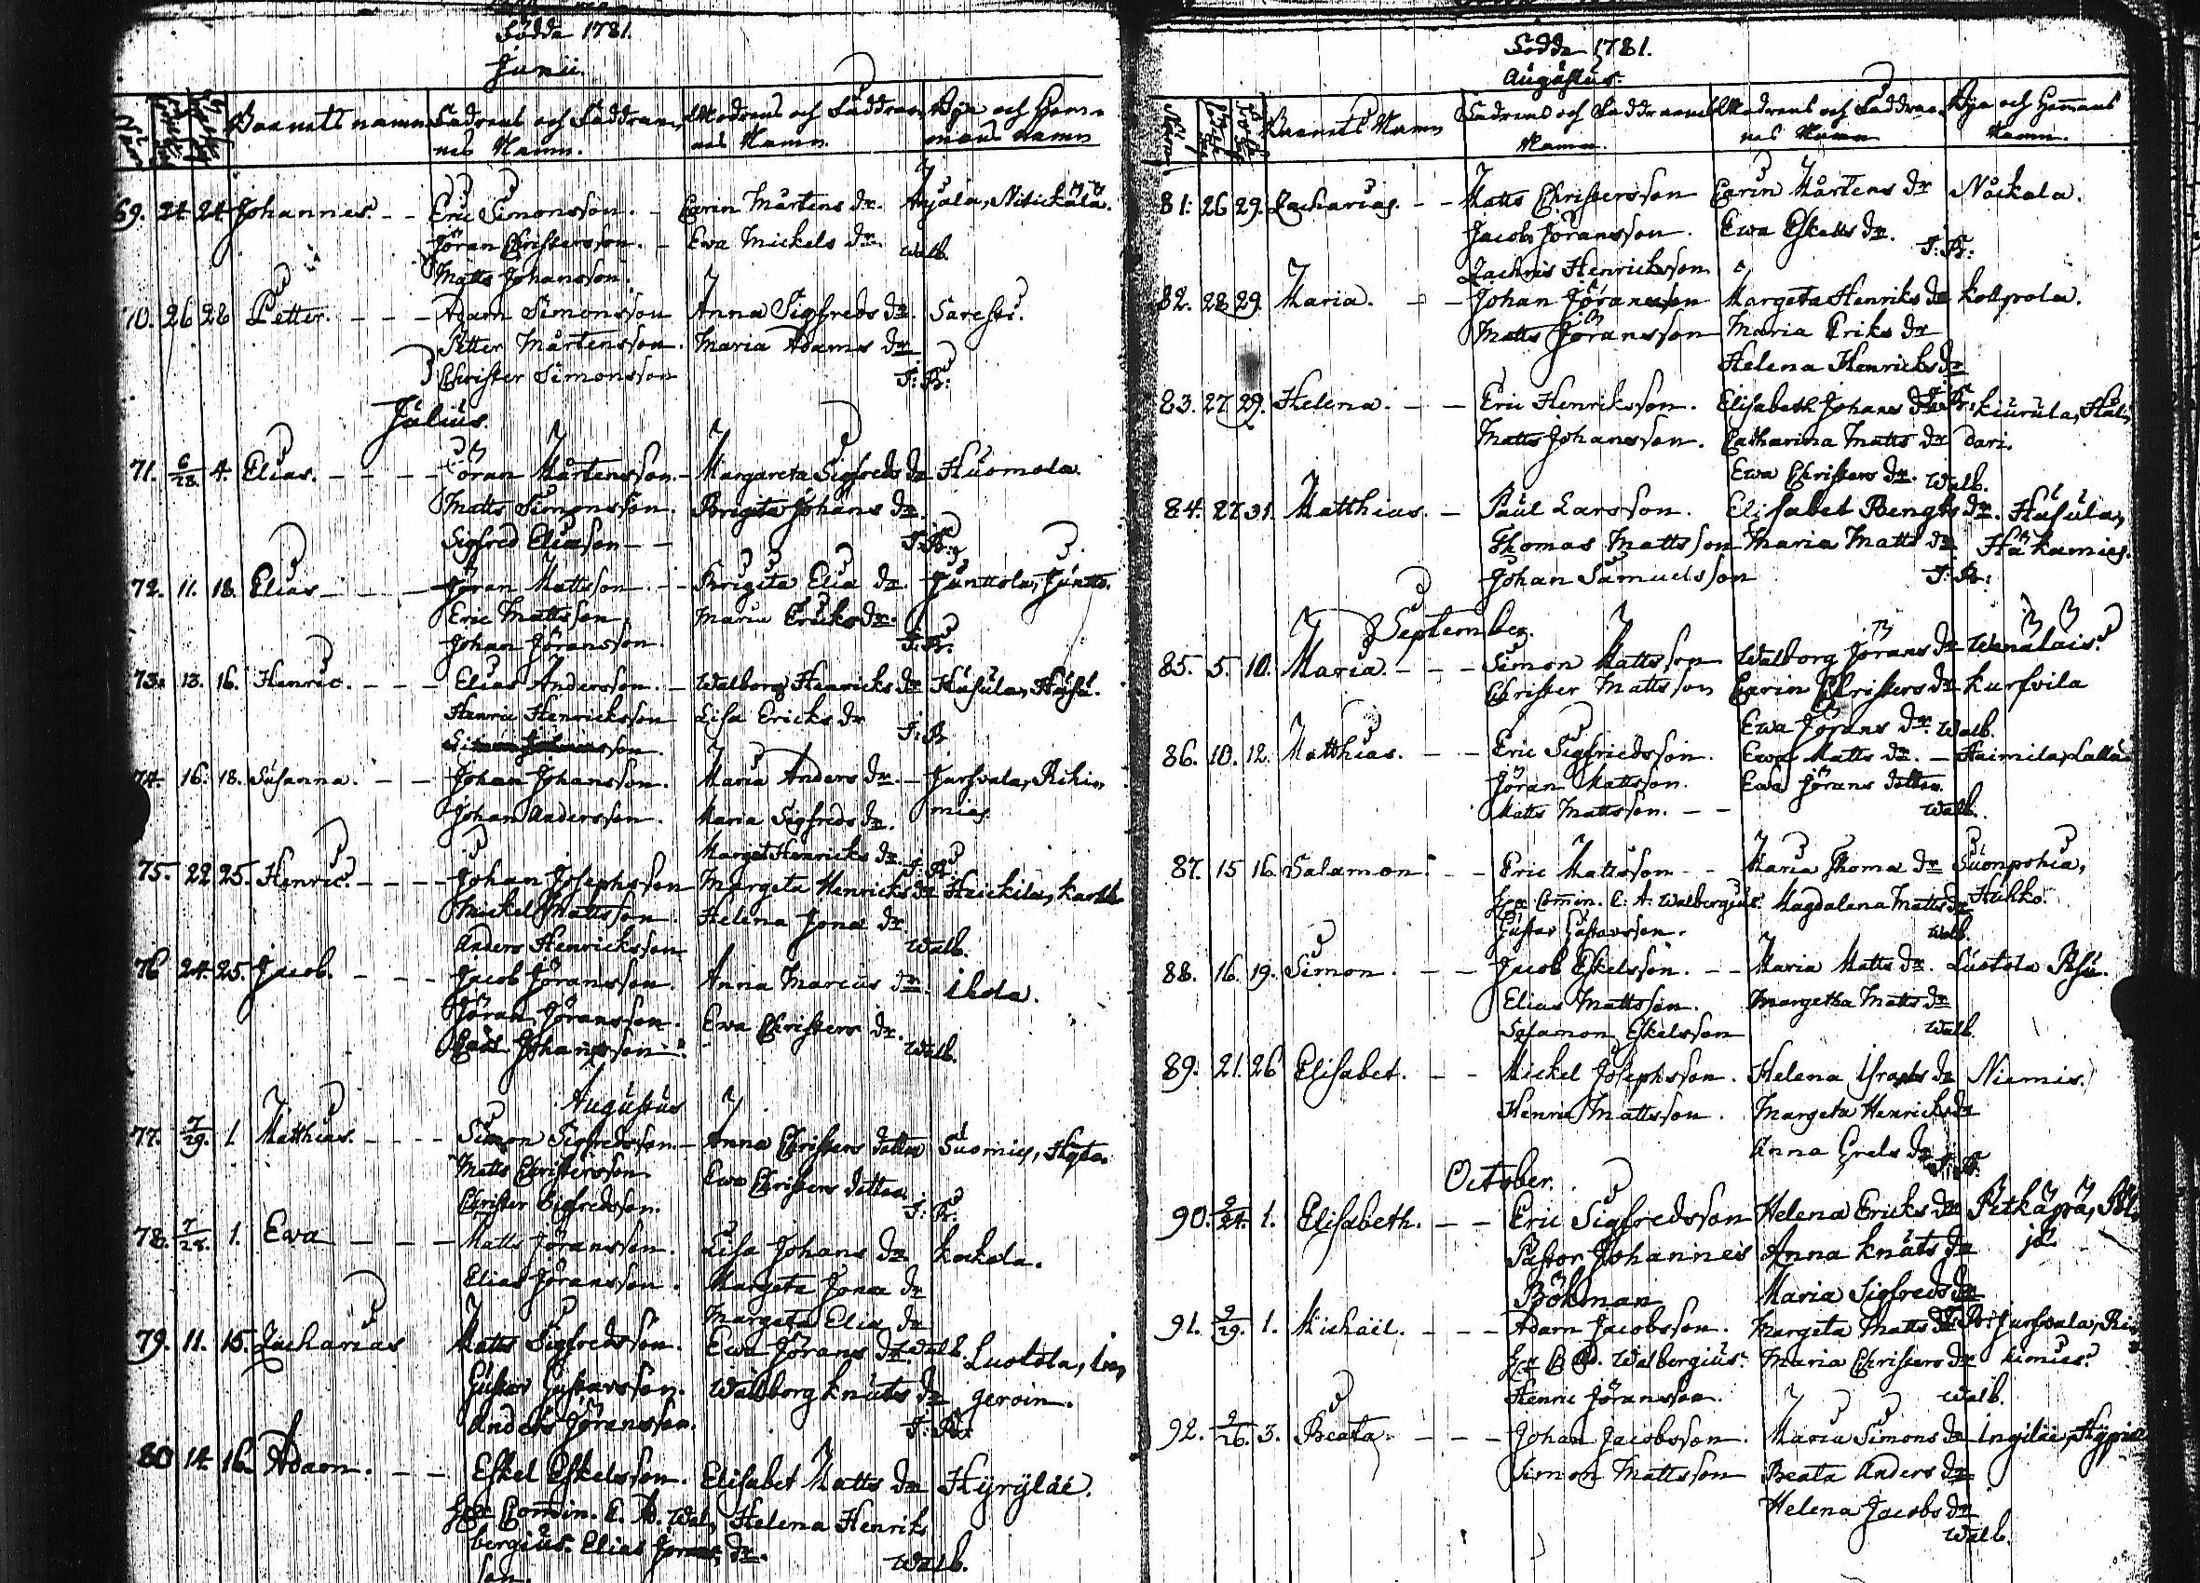 Födde 1781.
Junii.
Barnets namn Fadrens och Faddrar- Modrens och Faddrar- Bya och Hem-
nes Namn. nes Namn. mans namn
69. 24 24 Johannes. - - Eric Simonsson. - Carin Mårtens dr.
Jöran Christersson. - Ewa Mickels dr. Walb.
Matts Johansson.
70. 26 28 Petter. - - - Adam Simonsson Anna Sigfreds dr.
Petter Mårtensson. Maria Adams dr
Christer Simonsson J: B:
Julius.
71. 6/28. 4. Elias. - - - Jöran Mårtensson. - Margareta Sigfreds dr Huomola
Matts Simonsson. Brigita Johans dr.
Sigfred Eliasson - - J: B:
72. 11. 18. Elias - - - Jöran Mattsson. - Brigita Elia dr. Junttola, Juntto.
Eric Mattsson. Maria Ericks dr.
Johan Jöransson. J: B:
73. 13. 16. Henric. - - - Elias Andersson. - Walborg Henricks dr Husula, Husu.
Henric Henricksson Lisa Ericks dr J: B
74. 16. 18. Susanna. - - Johan Johansson. Maria Anders dr. - Jurfvala, Rikie,
Johan Andersson. Maria Sigfreds dr. mies
Marget Henricks dr. J: B:
75. 22 25. Henric. - - - Johan Josephsson Margeta Henricks dr Haickila,
Mickel Mattsson. Helena Jona dr
Anders Henricksson Walb.
76 24. 25. Jacob. - - - Jacob Jöransson. Anna Marcus dr. Ihola.
Jöran Jöransson. Ewa Christers dr.
Johansson. Walb.
Augustus
77. 7/29. 1. Matthias. - - - Simon Sigfredsson. - Anna Christers dotter Suomies,
Matts Christersson Ewa Christers dotter
Christer Sigfredsson. J: B:
78. 7/28. 1. Ewa - - - Matts Jöransson. Lisa Johans dr Kockola.
Elias Jöransson. Margeta Jona dr
Margeta Elia dr Walb.
79. 11. 15. Zacharias Matts Sigfredsson. Ewa Jörans dr. Luotola, In,
Gustav Gustavsson. Walborg Knuts dr geroin.
Anders Jöransson. J: B:
80 14 16. Adam. - - Eskel Eskelsson. Elisabet Matts dr Hyryläi.
Comin. C. A. Wal, Helena Henriks
bergius. Elias dr. Walb.
son.
Födde 1781.
Augustus.
Barnets Namn Fadrens och Faddrarnes Modrens och Faddrar- Bya och Hemans
Namn. nes Namn Namn.
81. 26 29. Zacharias. - - Matts Christersson Carin Mårtens dr Nåckala.
Jacob Jöransson. Ewa Eskells dr. J: B:
Zachris Henricksson
82. 28 29. Maria. - - Johan Jöransson Margeta Henriks dr Kollpola.
Matts Jöransson Maria Eriks dr
Helena Henricks dr
83. 27 29. Helena. - - Eric Henriksson. Elisabeth Johans dr Kiurula,
Matts Johansson. Catharina Matts dr dari.
Ewa Christers dr. Walb.
84. 27 31. Matthias. - Paul Larsson. Elisabet Bengts dr. Husula,
Thomas Mattsson Maria Matts dr Häkamies.
Johan Samuelsson J: B:
September.
85. 5. 10. Maria. - - - Simon Mattsson Walborg Jörans dr
Christer Mattsson Carin Christers dr Kurfvila
Ewa Jörans dr. Walb.
86. 10. 12. Matthias. - - Eric Sigfriedsson. Ewa Matts dr. - Haimila,
Jöran Mattsson. Ewa Jörans dotter
Matts Mattsson. - - Walb.
87. 15 16. Salamon. - - Eric Mattsson - - Maria Thoma dr Suonpohia,
Comin. C. A. Walbergius. Magdalena Matts dr Hukko.
Gustav Gustavsson. Walb.
88. 16. 19. Simon. - - Jacob Eskelsson. - - Maria Matts dr. Luotola
Elias Mattsson. Margetha Matts dr
Salamon Eskelsson Walb.
89. 21. 26 Elisabet. - - Mickel Josephsson. Helena Israels dr Niemis.
Henric Mattsson. Margeta Henricks dr
Anna Grels dr
October.
90. 9/24. 1. Elisabeth. - - Eric Sigfredsson Helena Ericks dr Pitkäpä,
Pastor Johannes Anna Knuts dr
Bökman Maria Sigfreds dr
91. 9/29. 1. Michäil. - - - Adam Jacobsson. Margeta Matts dr Jurfvala, Ri,
Walbergius. Maria Christers dr kimies.
Henric Jöransson. Walb.
92. 9/26. 3. Beata. - - - Johan Jacobsson. Maria Simons dr Ingiläi,
Simon Mattsson Beata Anders dr
Helena Jacobs dr
Walb.